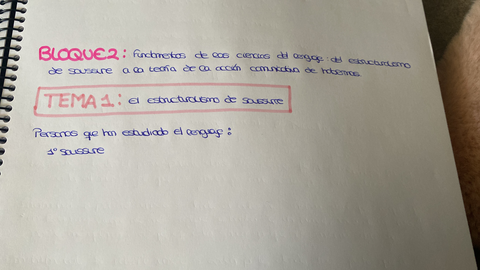 BLOQUE 2: Fundamentos de las ciencias del lenguaje: del estructuralismo
de saussure a la teoría de la acción comunicativa de habermas.
TEMA 1: el estructuralismo de saussure
Personas que han estudiado el lenguaje:
1º saussure